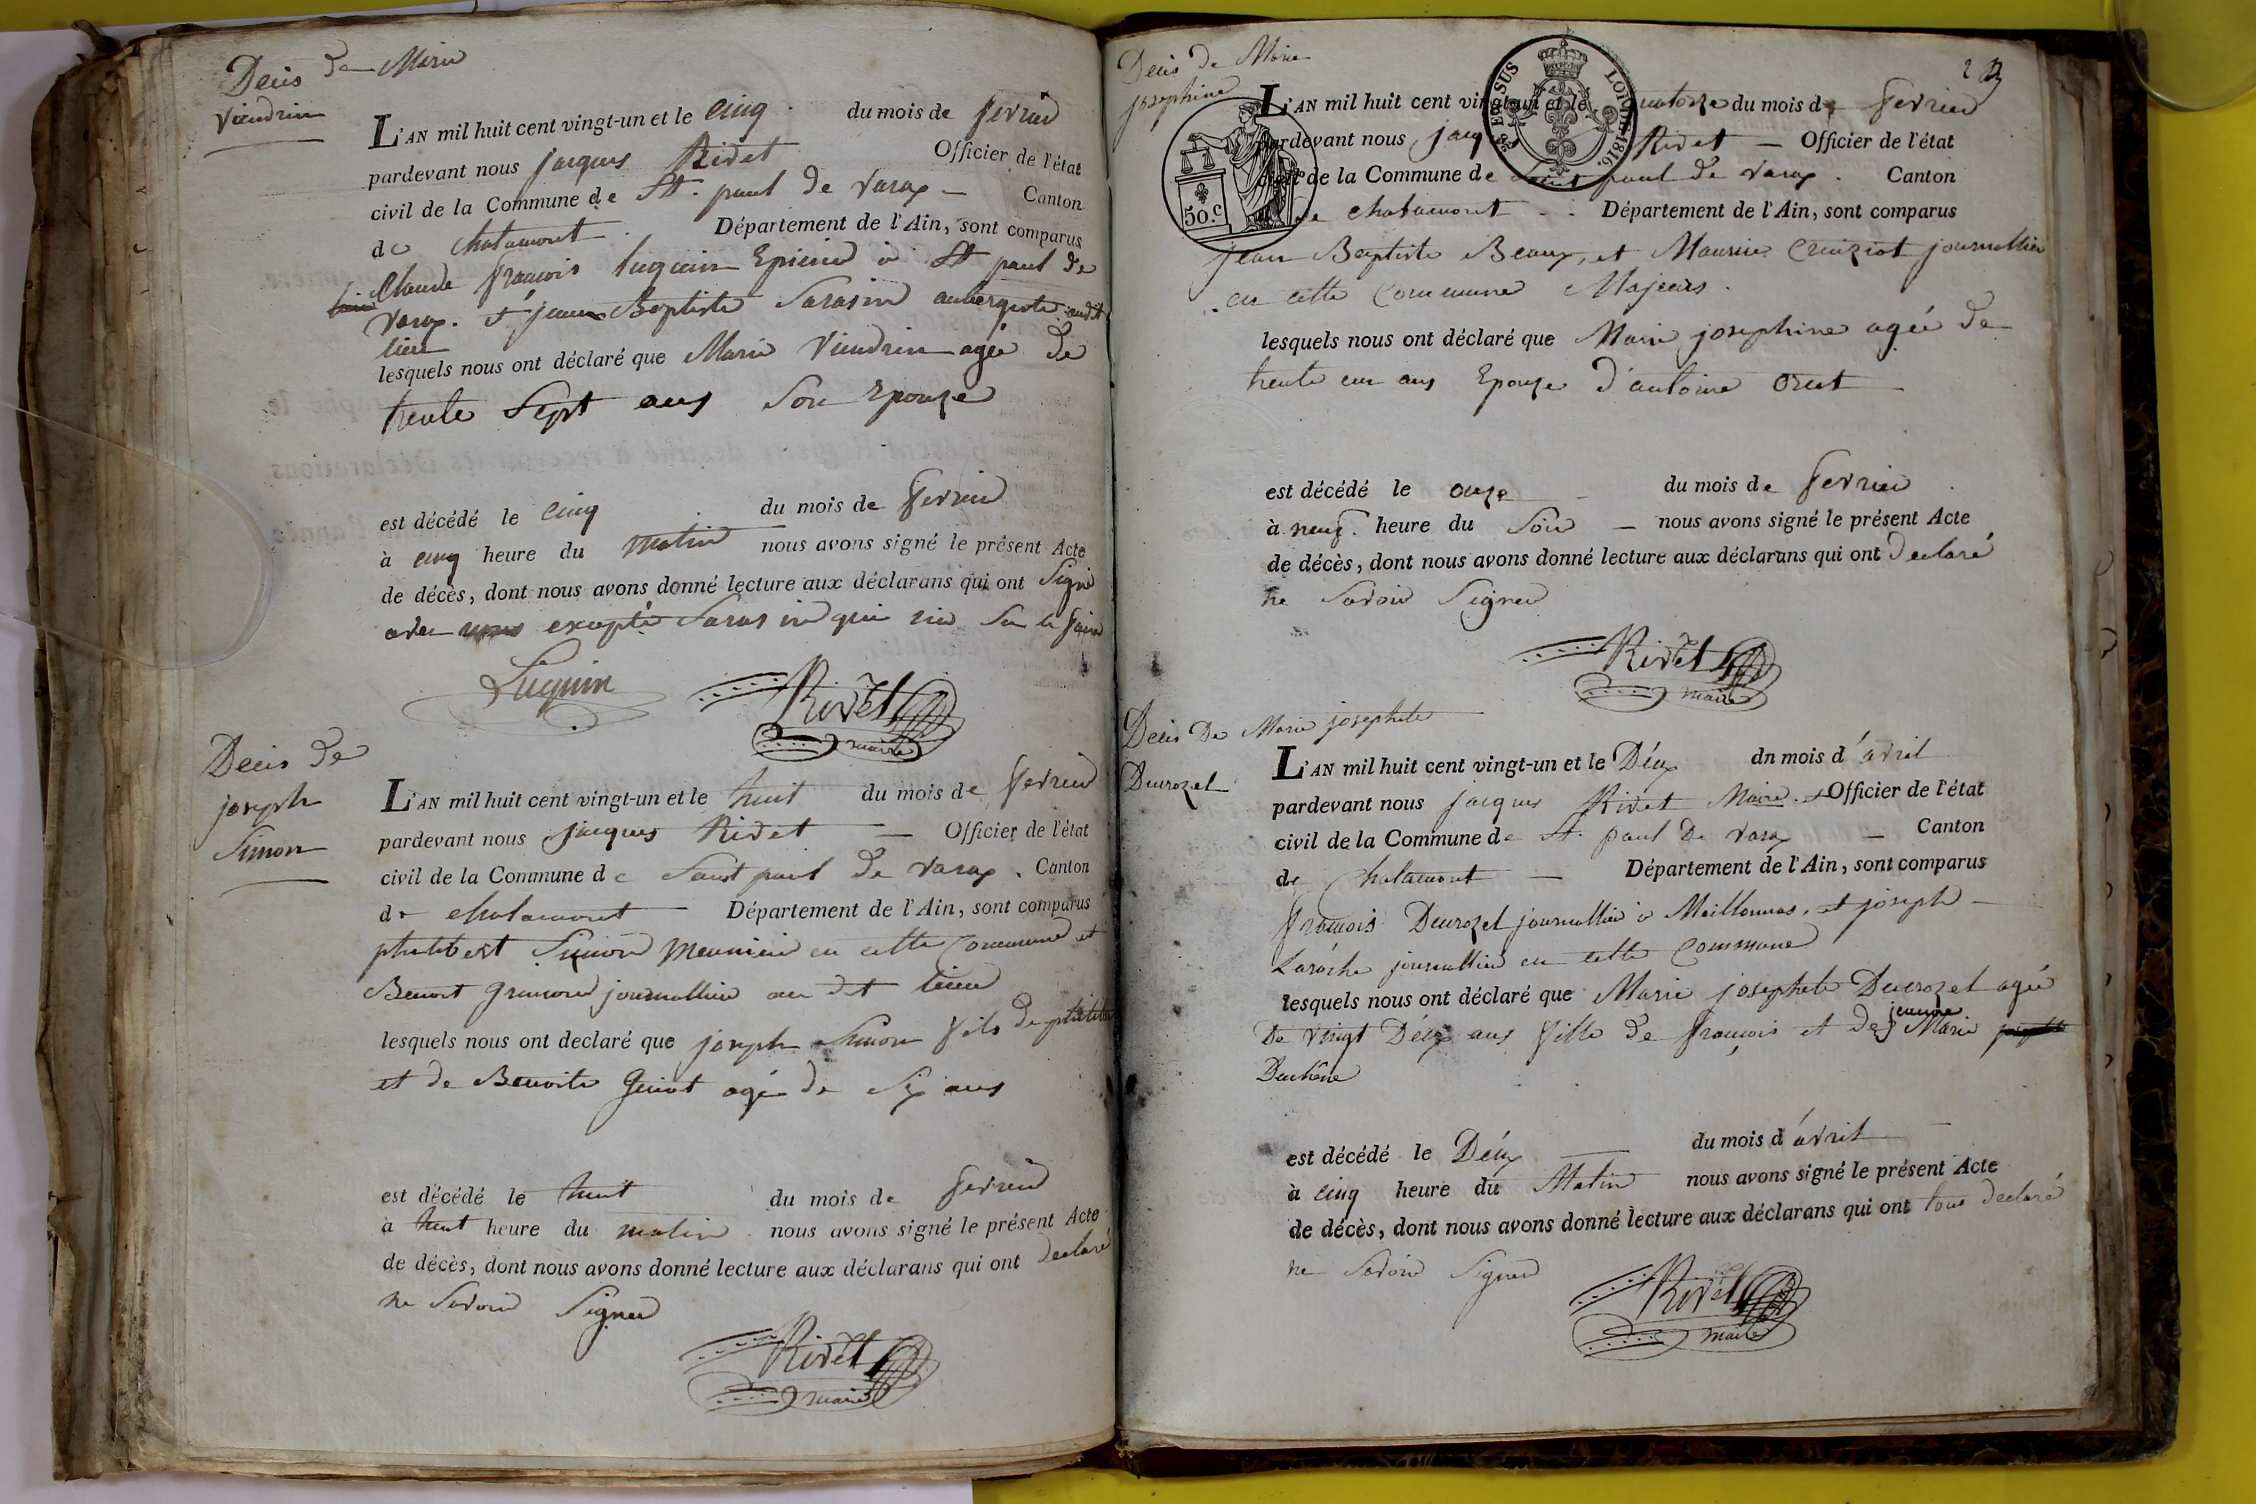 Decis de Marie
Viendrin
L'AN mil huit cent vingt-un et le cinq du mois de fevrier
pardevant nous jacques Rivet Officier de l'état
civil de la Commune de St. paul de varax - Canton
de chatamont Département de l'Ain, sont comparus
Claude françois luquin Epicier à St paul de
varax. et jean Baptiste Sarasin aubergiste audit
lieu
lesquels nous ont déclaré que Marie Viendrin agée de
trente Sept ans Son Epouze
est décédé le cinq du mois de fevrier
à cinq heure du matin nous avons signé le présent Acte
de décès, dont nous avons donné lecture aux déclarans qui ont Signé
avec nous excepté Sarasin qui
Luquin Rivet
maire
Decis de
joseph
Simon
L'AN mil huit cent vingt-un et le huit du mois de fevrier
pardevant nous jacques Rivet - Officier de l'état
civil de la Commune de Saint paul de varax. Canton
de chalamont Département de l'Ain, sont comparus
philibert Simon Meunier en cette Commune et
Benoit journallier au dit lieu
lesquels nous ont déclaré que joseph Simon fils de
et de Benoite agé de Six ans
est décédé le huit du mois de fevrier
à huit heure du matin nous avons signé le présent Acte
de décès, dont nous avons donné lecture aux déclarans qui ont declaré
ne Savoir Signer
Rivet
maire
2
Decis de Marie
josephine
EN SUS LOI DE 1816.
50.c
L'AN mil huit cent vingt-un et le quatorze du mois de fevrier
pardevant nous jacques Rivet - Officier de l'état
civil de la Commune de Saint paul de varax. Canton
de chatamont Département de l'Ain, sont comparus
jean Baptiste Beaux, et Maurice Cruiziat journallier
en cette Commune Majeurs.
lesquels nous ont déclaré que Marie josephine agée de
trente un ans Epouze d'antoine
est décédé le onze du mois de fevrier
à neuf. heure du Soir - nous avons signé le présent Acte
de décès, dont nous avons donné lecture aux déclarans qui ont declaré
ne Savoir Signer
Rivet
maire
Decis De Marie josephete
Decrozet
L'AN mil huit cent vingt-un et le Déux dn mois d'avril
pardevant nous jacques Rivet Maire et Officier de l'état
civil de la Commune de St. paul De varax - Canton
de Chalamont - Département de l'Ain, sont comparus
françois Decrozet journallier à Meillonnas, et joseph
Laroche journallier en cette Commune
lesquels nous ont déclaré que Marie josephete Decrozet agée
De vingt Déux ans fille de françois et de jeanne Marie
Duchêne
est décédé le Déux du mois d'avril
à cinq heure du Matin nous avons signé le présent Acte
de décès, dont nous avons donné lecture aux déclarans qui ont tous declaré
ne Savoir Signer
Rivet
maire